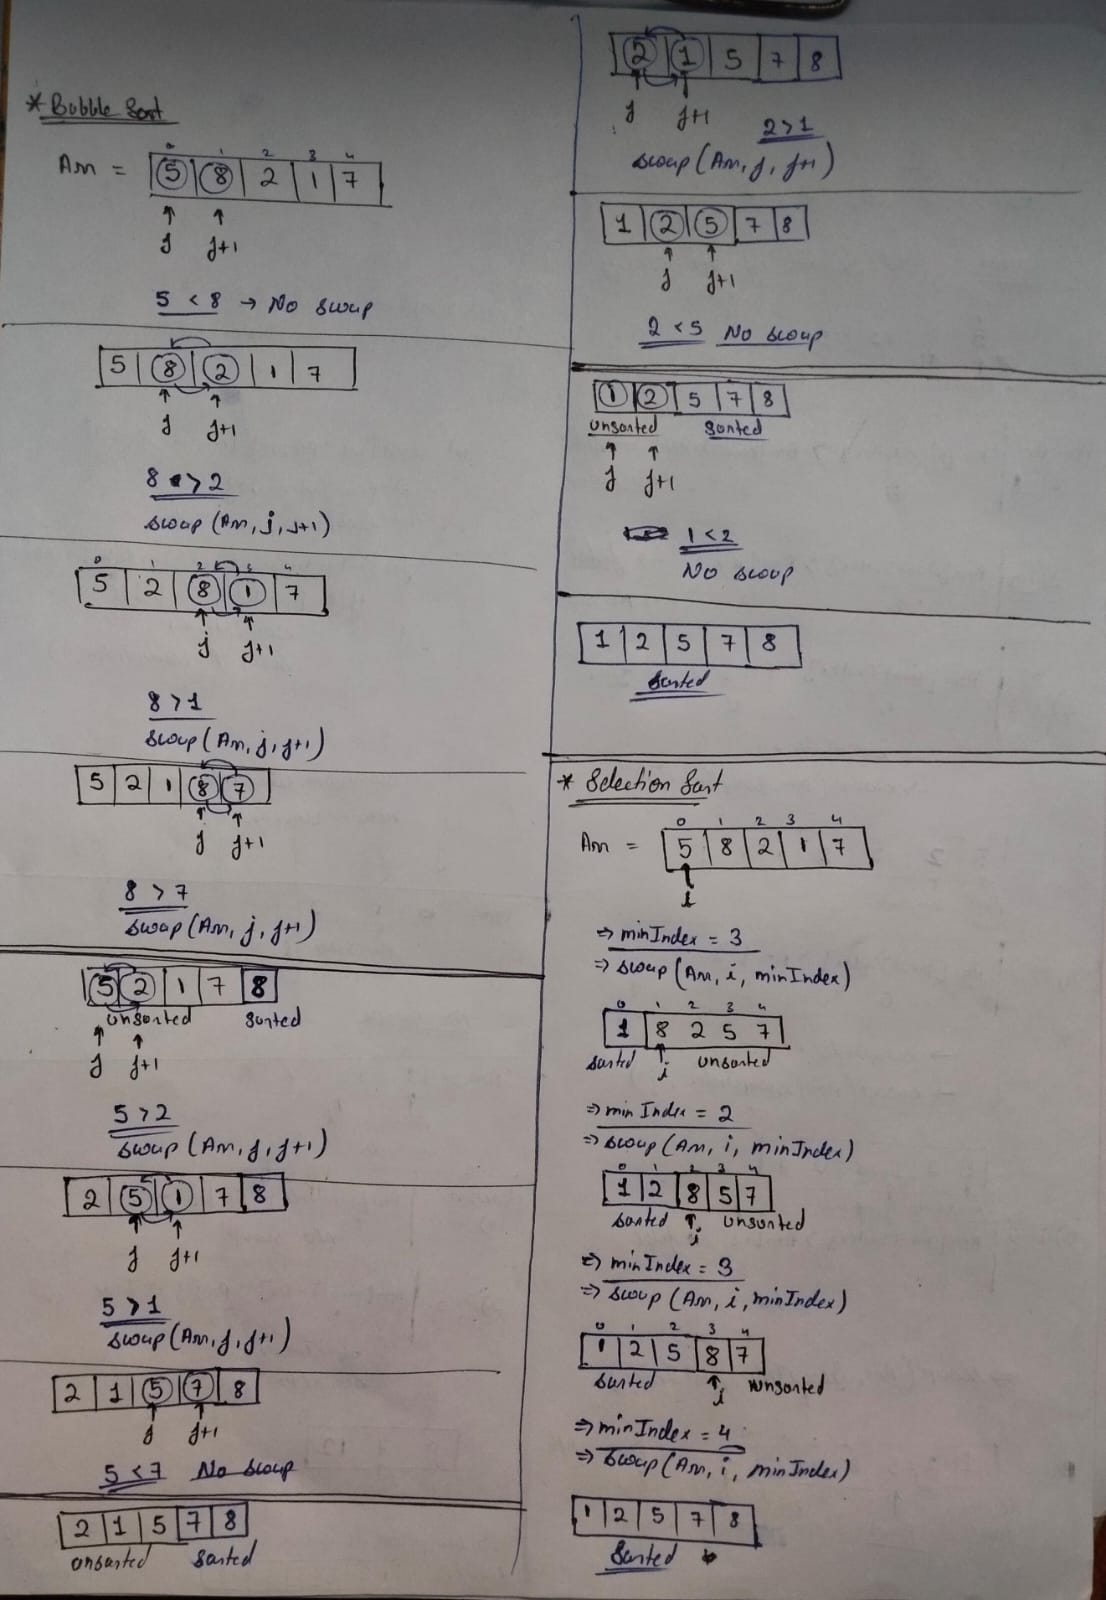 * Bubble Sort
0 1 2 3 4
Arr = 5 8 2 1 7
j j+1
5 < 8 → No swap
5 8 2 1 7
j j+1
8 > 2
swap (Arr, j, j+1)
0 1 2 3 4
5 2 8 1 7
j j+1
8 > 1
swap (Arr, j, j+1)
5 2 1 8 7
j j+1
8 > 7
swap (Arr, j, j+1)
5 2 1 7 8
unsorted sorted
j j+1
5 > 2
swap (Arr, j, j+1)
2 5 1 7 8
j j+1
5 > 1
swap (Arr, j, j+1)
2 1 5 7 8
j j+1
5 < 7 No swap
2 1 5 7 8
unsorted sorted
2 1 5 7 8
j j+1
2 > 1
swap (Arr, j, j+1)
1 2 5 7 8
j j+1
2 < 5 No swap
1 2 5 7 8
unsorted sorted
j j+1
1 < 2
No swap
1 2 5 7 8
Sorted
* Selection Sort
0 1 2 3 4
Arr = 5 8 2 1 7
i
⇒ minIndex = 3
⇒ swap (Arr, i, minIndex)
0 1 2 3 4
1 8 2 5 7
sorted i unsorted
⇒ minIndex = 2
⇒ swap (Arr, i, minIndex)
0 1 2 3 4
1 2 8 5 7
sorted i unsorted
⇒ minIndex = 3
⇒ swap (Arr, i, minIndex)
0 1 2 3 4
1 2 5 8 7
sorted i unsorted
⇒ minIndex = 4
⇒ swap (Arr, i, minIndex)
1 2 5 7 8
Sorted